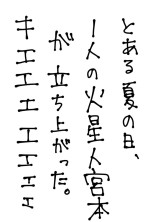 とある夏の日、
1人の火星人宮本
が立ち上がった。
キエエエエエエエ